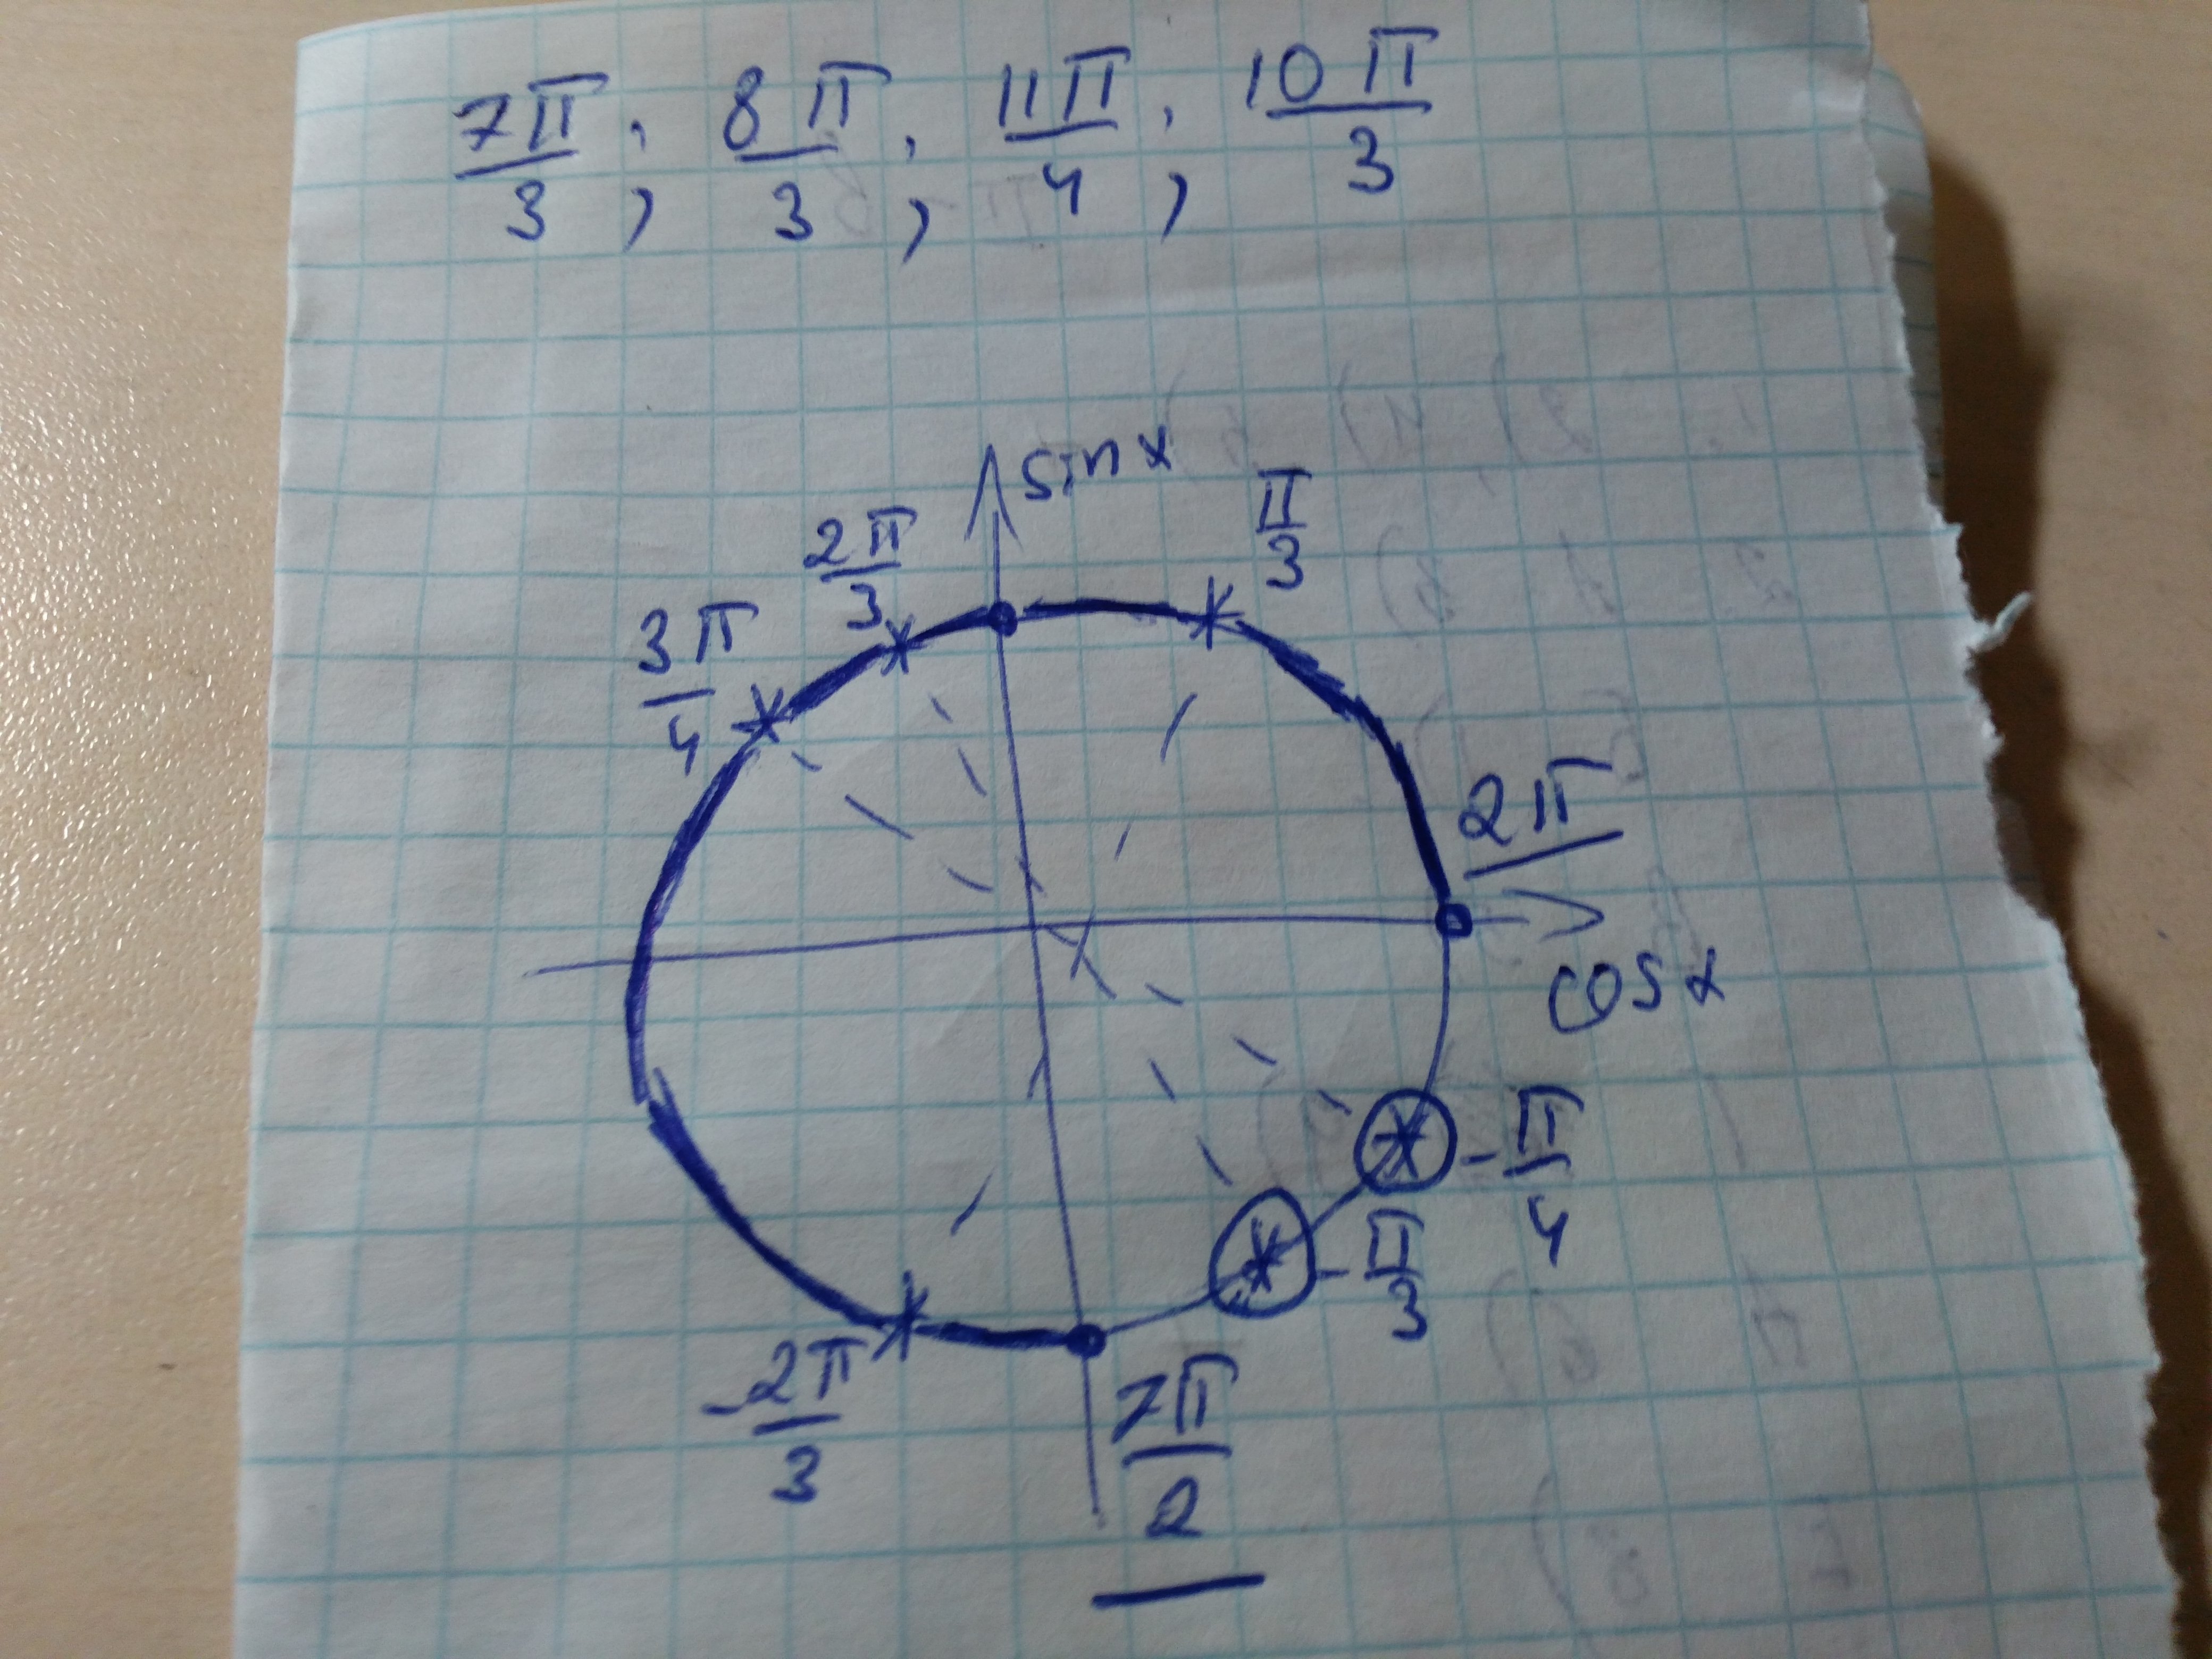 7π/3; 8π/3; 11π/4; 10π/3
sin x
π/3
2π/3
3π/4
2π
cos x
-π/4
-π/3
-2π/3
7π/2